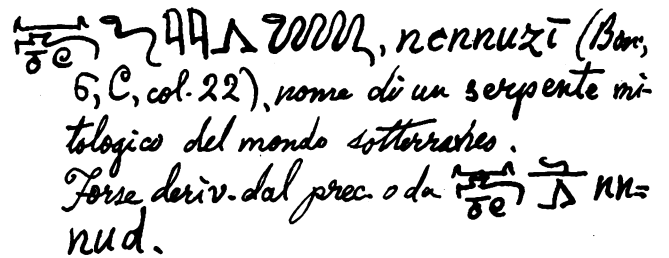 , nennuzī (Bon,
6, C, col. 22), nome di un serpente mi-
tologico del mondo sotterraneo.
Forse deriv. dal prec. o da nn=
nud.